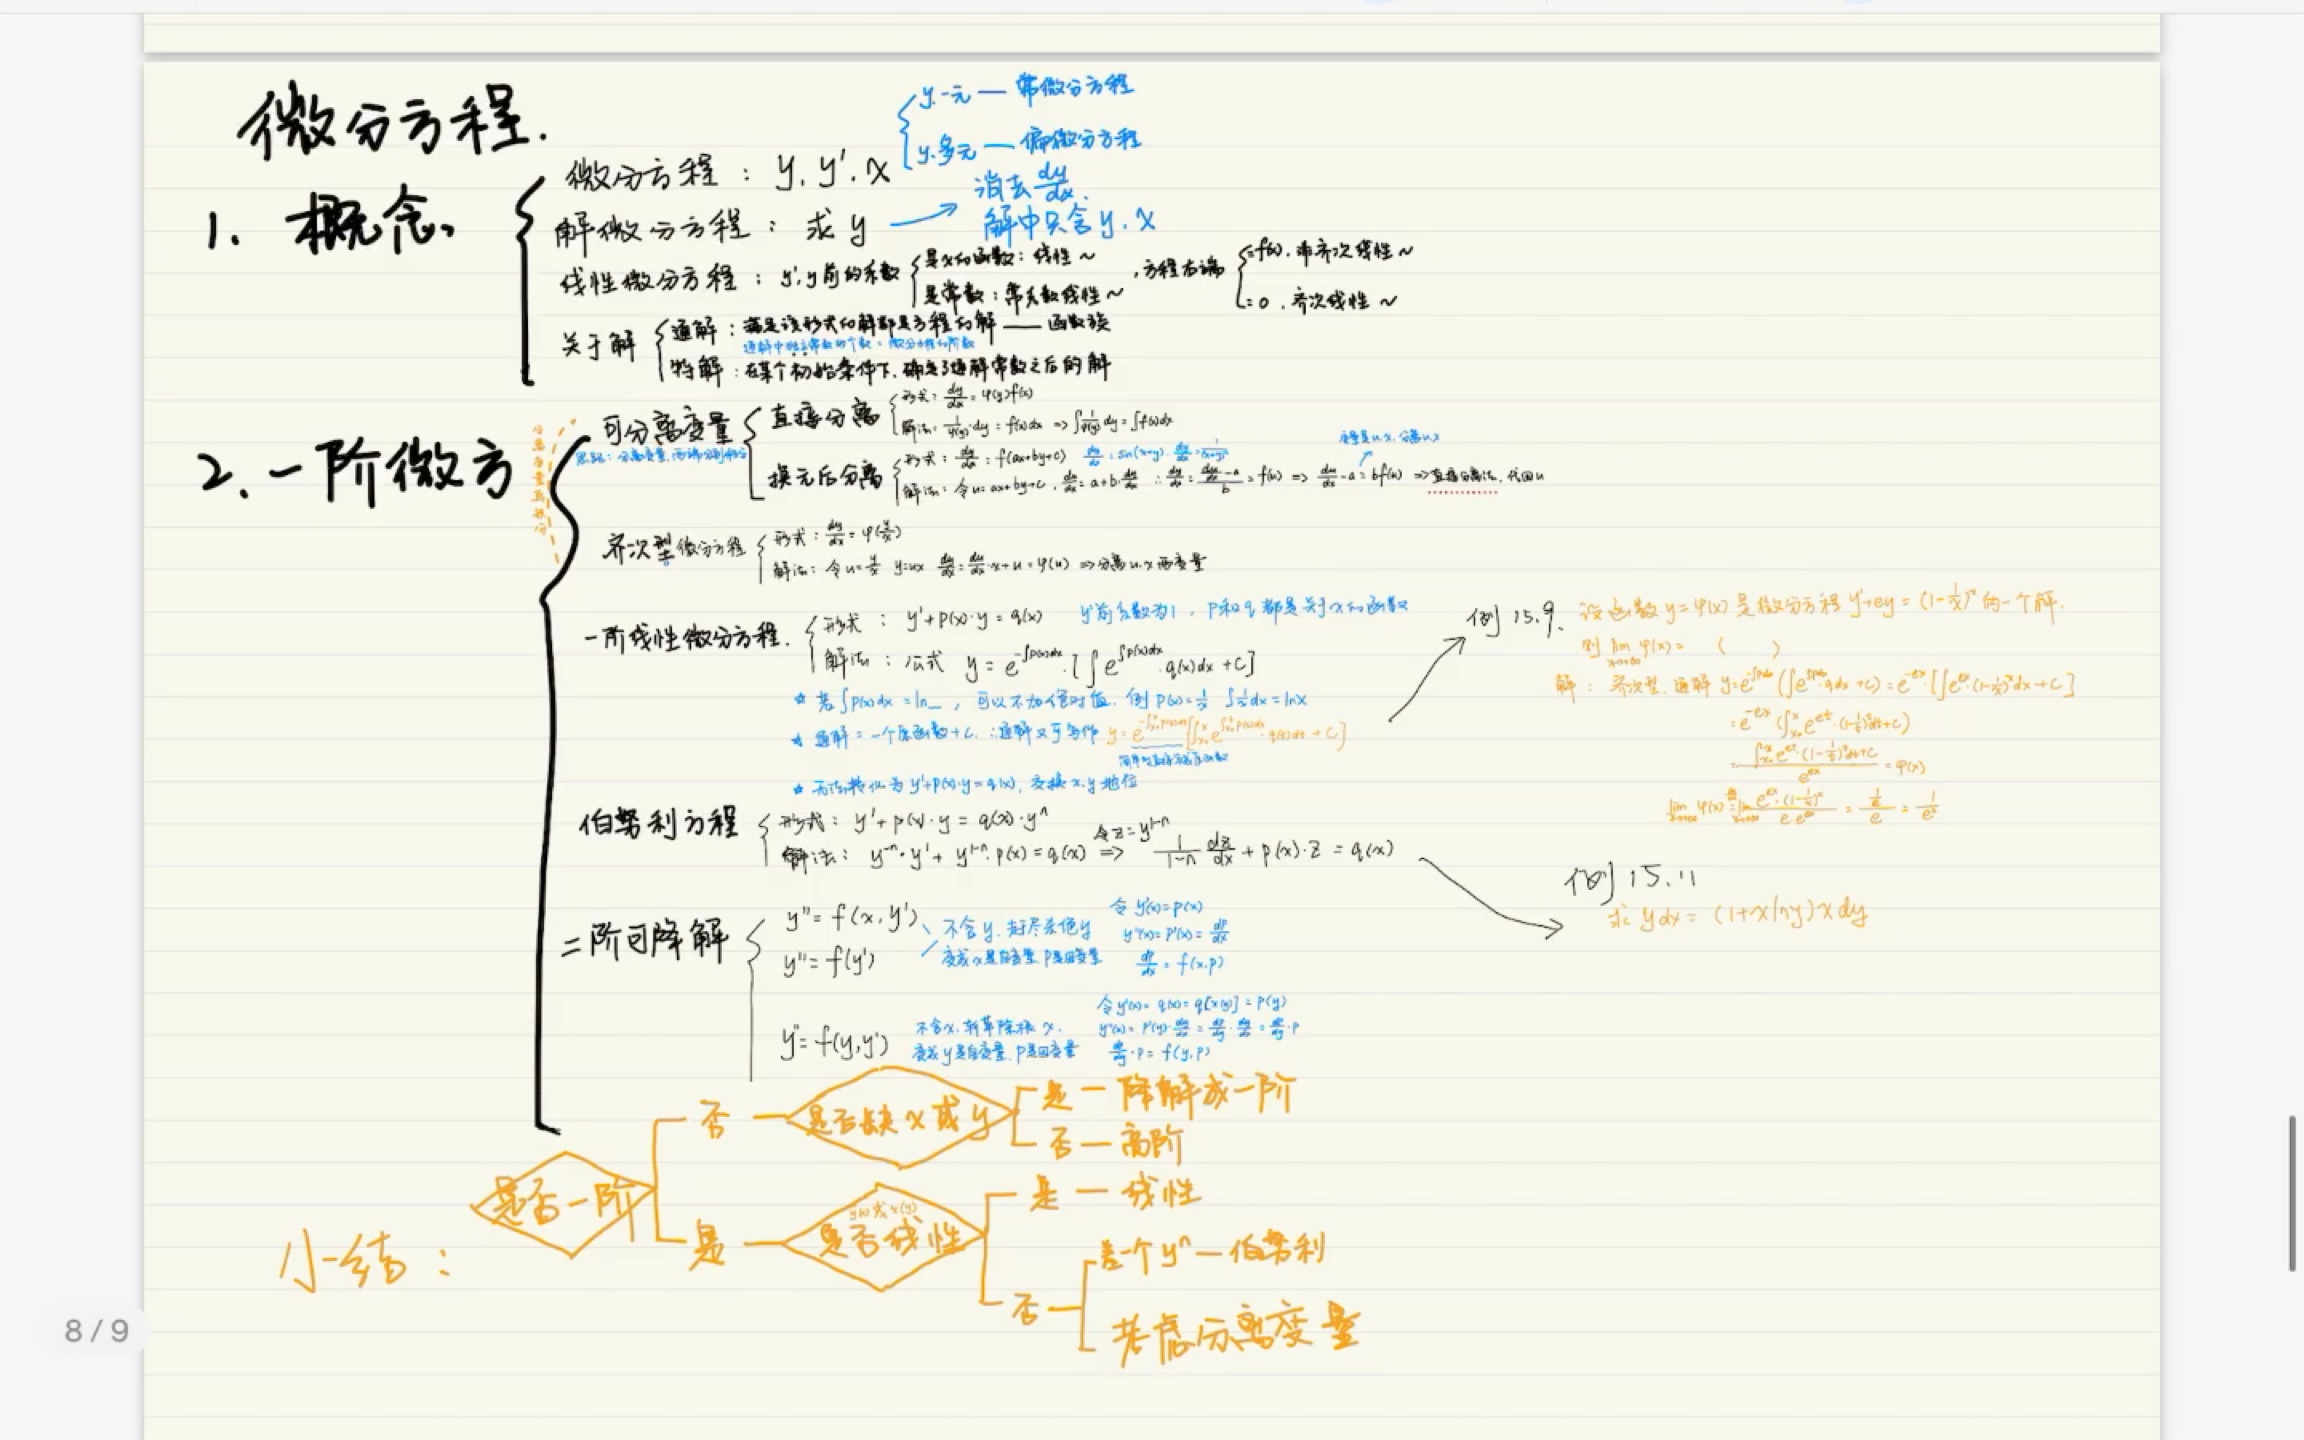 微分方程.
1. 概念
微分方程：y, y', x
y.一元 — 常微分方程
y.多元 — 偏微分方程
解微分方程：求y
消去 dy/dx.
解中只含 y. x
线性微分方程：y', y前的系数
是x的函数：线性~
是常数：常系数线性~
, 方程右端
=f(x). 非齐次线性~
=0. 齐次线性~
关于解
通解：满足该形式的解都是方程的解 —— 函数族
通解中独立常数的个数 = 微分方程的阶数
特解：在某个初始条件下, 确定了通解常数之后的解
2. 一阶微方
可分离变量
直接分离
形式：dy/dx = φ(y)f(x)
解法：1/φ(y)·dy = f(x)dx ⇒ ∫1/φ(y) dy = ∫f(x)dx
换元后分离
形式：dy/dx = f(ax+by+c)
变量是u.x, 分离u.x
解法：令u=ax+by+c, du/dx = a+b·dy/dx ∴ dy/dx = (du/dx -a)/b = f(u) ⇒ du/dx -a = bf(u) ⇒ 直接分离法, 代回u
齐次型微分方程
形式：dy/dx = φ(y/x)
解法：令u=y/x y=ux dy/dx = du/dx·x+u = φ(u) ⇒ 分离u.x两变量
一阶线性微分方程.
形式：y'+p(x)·y = q(x) y'前系数为1, p和q都是关于x的函数
解法：公式 y = e^{-∫p(x)dx}·[∫e^{∫p(x)dx}·q(x)dx + C]
☆ 若∫p(x)dx = ln_, 可以不加绝对值. 例 p(x)=1/x ∫1/x dx = lnx
☆ 通解 = 一个原函数+C. ∴通解又可写作 y=e^{-∫p(x)dx}[∫e^{∫p(x)dx}·q(t)dt + C]
☆ 无法转化为 y'+p(x)·y = q(x), 交换x.y地位
伯努利方程
形式：y'+p(x)·y = q(x)·yⁿ
解法：y⁻ⁿ·y' + y¹⁻ⁿ·p(x) = q(x) 令z=y¹⁻ⁿ ⇒ 1/(1-n) dz/dx + p(x)·z = q(x)
二阶可降解
y''=f(x,y')
y''=f(y')
不含y, 赶尽杀绝y
变成x是自变量, p是因变量
令y'(x)=p(x)
y''(x)=p'(x)=dp/dx
dp/dx = f(x.p)
y''=f(y,y')
不含x, 斩草除根x.
变成y是自变量, p是因变量
令y'(x)=q(x)=q[x(y)]=p(y)
y''(x)=p'(y)·dy/dx = dp/dy·dy/dx = dp/dy·p
dp/dy·p = f(y,p)
例 15.9. 设函数y=φ(x)是微分方程y'+ey=(1-1/x)ˣ的一个解.
则 lim x→+∞ φ(x) = ( )
解：齐次型, 通解 y=e^{-∫pdx}(∫e^{∫pdx}·qdx+C) = e^{-ex}[∫e^{ex}·(1-1/x)ˣdx+C]
例 15.11
求 ydx = (1+xlny)xdy
小结：
是否一阶
否 — 是否缺x或y
是 — 降解成一阶
否 — 高阶
是 — 是否线性
y(x)或x(y)
是 — 线性
否
差个yⁿ — 伯努利
考虑分离变量
8 / 9